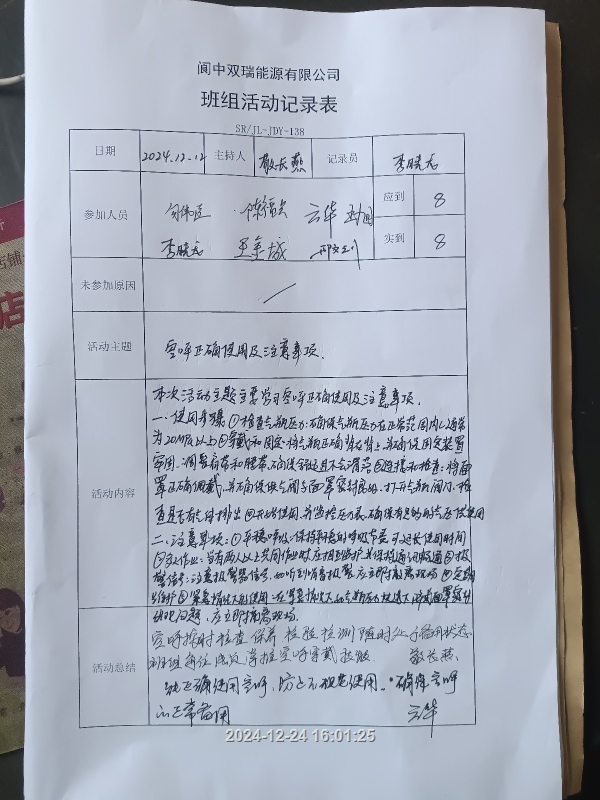 阆中双瑞能源有限公司
班组活动记录表
SR/JL-JDY-138
日期 2024.12.12 主持人 敬长燕 记录员 李晓龙
参加人员 云华 应到 8
李晓龙 实到 8
未参加原因 /
活动主题 空呼正确使用及注意事项.
活动内容
本次活动主题主要学习空呼正确使用及注意事项.
一.使用步骤①检查气瓶压力:确保气瓶压力在正常范围内(通常
为20MPa以上②穿戴和固定:将气瓶正确背在背上,并确保固定装置
牢固.调整肩带和腰带,确保舒适且不会滑落③连接和检查:将面
罩正确佩戴,并确保供气阀与面罩密封良好.打开气瓶阀门,检
查是否有气体排出④开始使用,并监控压力表,确保有足够的气压供使用
二.注意事项:①平稳呼吸:保持平稳的呼吸节奏可延长使用时间
②双人作业:当有两人以上共同作业时应相互监护,并保持通讯畅通③报
警信号:注意报警器信号,如听到哨音报警,应立即撤离现场④定期
维护⑤紧急情况下的使用:在紧急情况下,如气瓶压力过低或面罩密封
出现问题,应立即撤离现场.
活动总结
空呼按时检查保养 检验检测 随时处于备用状态
班组每位成员掌握空呼穿戴 敬长燕
正确使用空呼,防止不规范使用. 确保空呼
正常备用 云华
2024-12-24 16:01:25